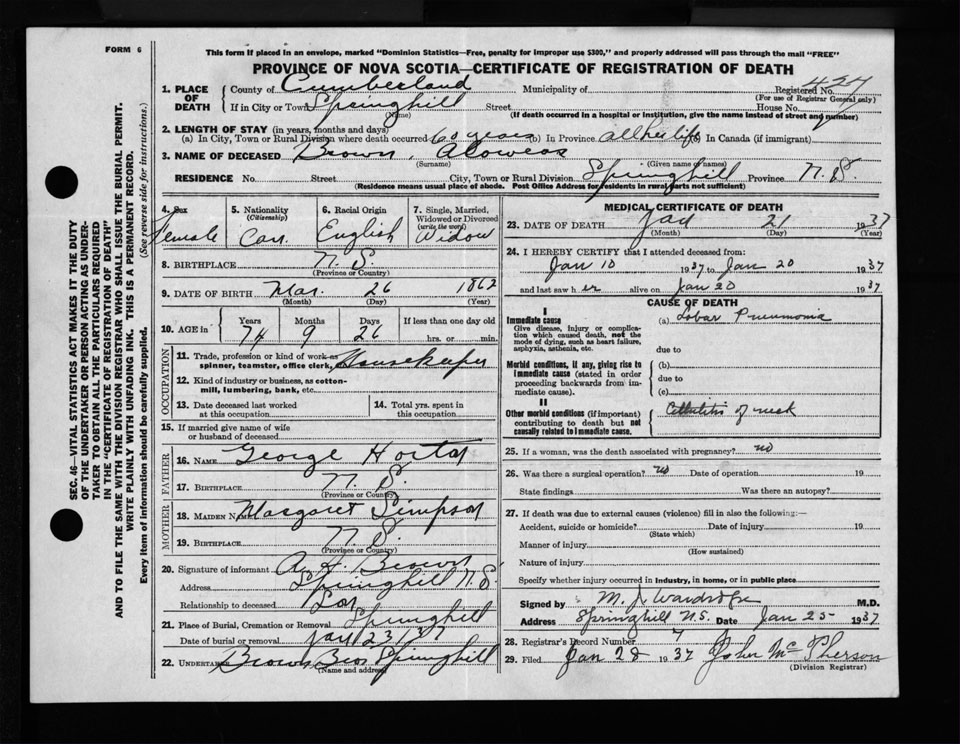 FORM 6
This form if placed in an envelope, marked "Dominion Statistics—Free, penalty for improper use $300," and properly addressed will pass through the mail "FREE"
PROVINCE OF NOVA SCOTIA—CERTIFICATE OF REGISTRATION OF DEATH
1. PLACE OF DEATH County of Cumberland Municipality of Registered No.
(For use of Registrar General only)
If in City or Town Springhill Street House No.
(Name) (If death occurred in a hospital or institution, give the name instead of street and number)
2. LENGTH OF STAY (in years, months and days)
(a) In City, Town or Rural Division where death occurred 60 years (b) In Province all her life (c) In Canada (if immigrant)
3. NAME OF DECEASED Brown,
(Surname) (Given name or names)
RESIDENCE No. Street City, Town or Rural Division Springhill Province N.S.
(Residence means usual place of abode. Post Office Address for residents in rural parts not sufficient)
4. Sex Female
5. Nationality (Citizenship) Can.
6. Racial Origin English
7. Single, Married, Widowed or Divorced (write the word) Widow
8. BIRTHPLACE N.S.
(Province or Country)
9. DATE OF BIRTH Mar. 26 1862
(Month) (Day) (Year)
10. AGE in Years Months Days If less than one day old
74 9 26 hrs. or min.
OCCUPATION
11. Trade, profession or kind of work as spinner, teamster, office clerk, Housekeeper
12. Kind of industry or business, as cotton-mill, lumbering, bank, etc.
13. Date deceased last worked at this occupation
14. Total yrs. spent in this occupation
15. If married give name of wife or husband of deceased
FATHER
16. NAME George Horton
17. BIRTHPLACE N.S.
(Province or Country)
MOTHER
18. MAIDEN NAME Margaret Simpson
19. BIRTHPLACE N.S.
(Province or Country)
20. Signature of informant A. H. Brown
Address Springhill N.S.
Relationship to deceased Son
21. Place of Burial, Cremation or Removal Springhill
Date of burial or removal Jan 23/37
22. Undertaker Brown Bros Springhill
(Name and address)
MEDICAL CERTIFICATE OF DEATH
23. DATE OF DEATH Jan 21 1937
(Month) (Day) (Year)
24. I HEREBY CERTIFY that I attended deceased from:
Jan 10 1937 to Jan 20 1937
and last saw her alive on Jan 20 1937
CAUSE OF DEATH
I
Immediate cause (a) Lobar Pneumonia
Give disease, injury or complication which caused death, not the mode of dying, such as heart failure, asphyxia, asthenia, etc.
due to
Morbid conditions, if any, giving rise to immediate cause (stated in order proceeding backwards from immediate cause). (b)
due to
(c)
II
Other morbid conditions (if important) contributing to death but not causally related to immediate cause. Cellulitis of neck
25. If a woman, was the death associated with pregnancy? no
26. Was there a surgical operation? no Date of operation 19
State findings Was there an autopsy?
27. If death was due to external causes (violence) fill in also the following:—
Accident, suicide or homicide? Date of injury 19
(State which)
Manner of injury
(How sustained)
Nature of injury
Specify whether injury occurred in industry, in home, or in public place
Signed by M. J. Wardrope M.D.
Address Springhill N.S. Date Jan 25 1937
28. Registrar's Record Number 7
29. Filed Jan 28 1937 John McPherson
(Division Registrar)
SEC. 46—VITAL STATISTICS ACT MAKES IT THE DUTY
OF THE UNDERTAKER OR PERSON ACTING AS UNDER-
TAKER TO OBTAIN ALL THE PARTICULARS REQUIRED
IN THE "CERTIFICATE OF REGISTRATION OF DEATH"
AND TO FILE THE SAME WITH THE DIVISION REGISTRAR WHO SHALL ISSUE THE BURIAL PERMIT.
WRITE PLAINLY WITH UNFADING INK. THIS IS A PERMANENT RECORD.
Every item of information should be carefully supplied. (See reverse side for instructions.)